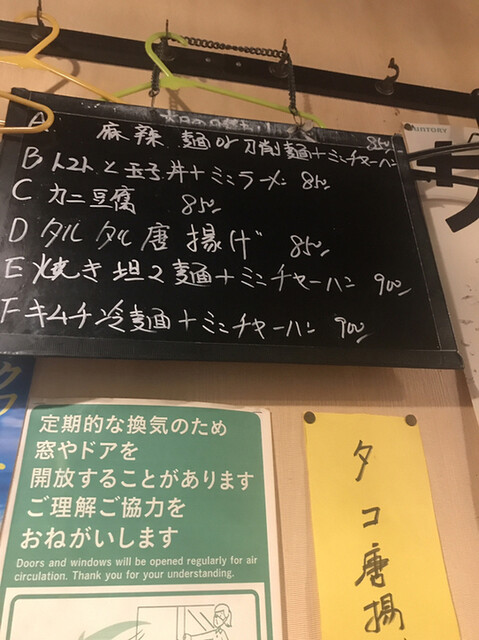 A 麻辣麺or刀削麺+ミニチャーハン 850
B トマトと玉子丼+ミニラーメン 850
C カニ豆腐 850
D タルタル唐揚げ 850
E 焼き坦々麺+ミニチャーハン 900
F キムチ冷麺+ミニチャーハン 900
SUNTORY
定期的な換気のため
窓やドアを
開放することがあります
ご理解ご協力を
おねがいします
Doors and windows will be opened regularly for air
circulation. Thank you for your understanding.
タコ唐揚